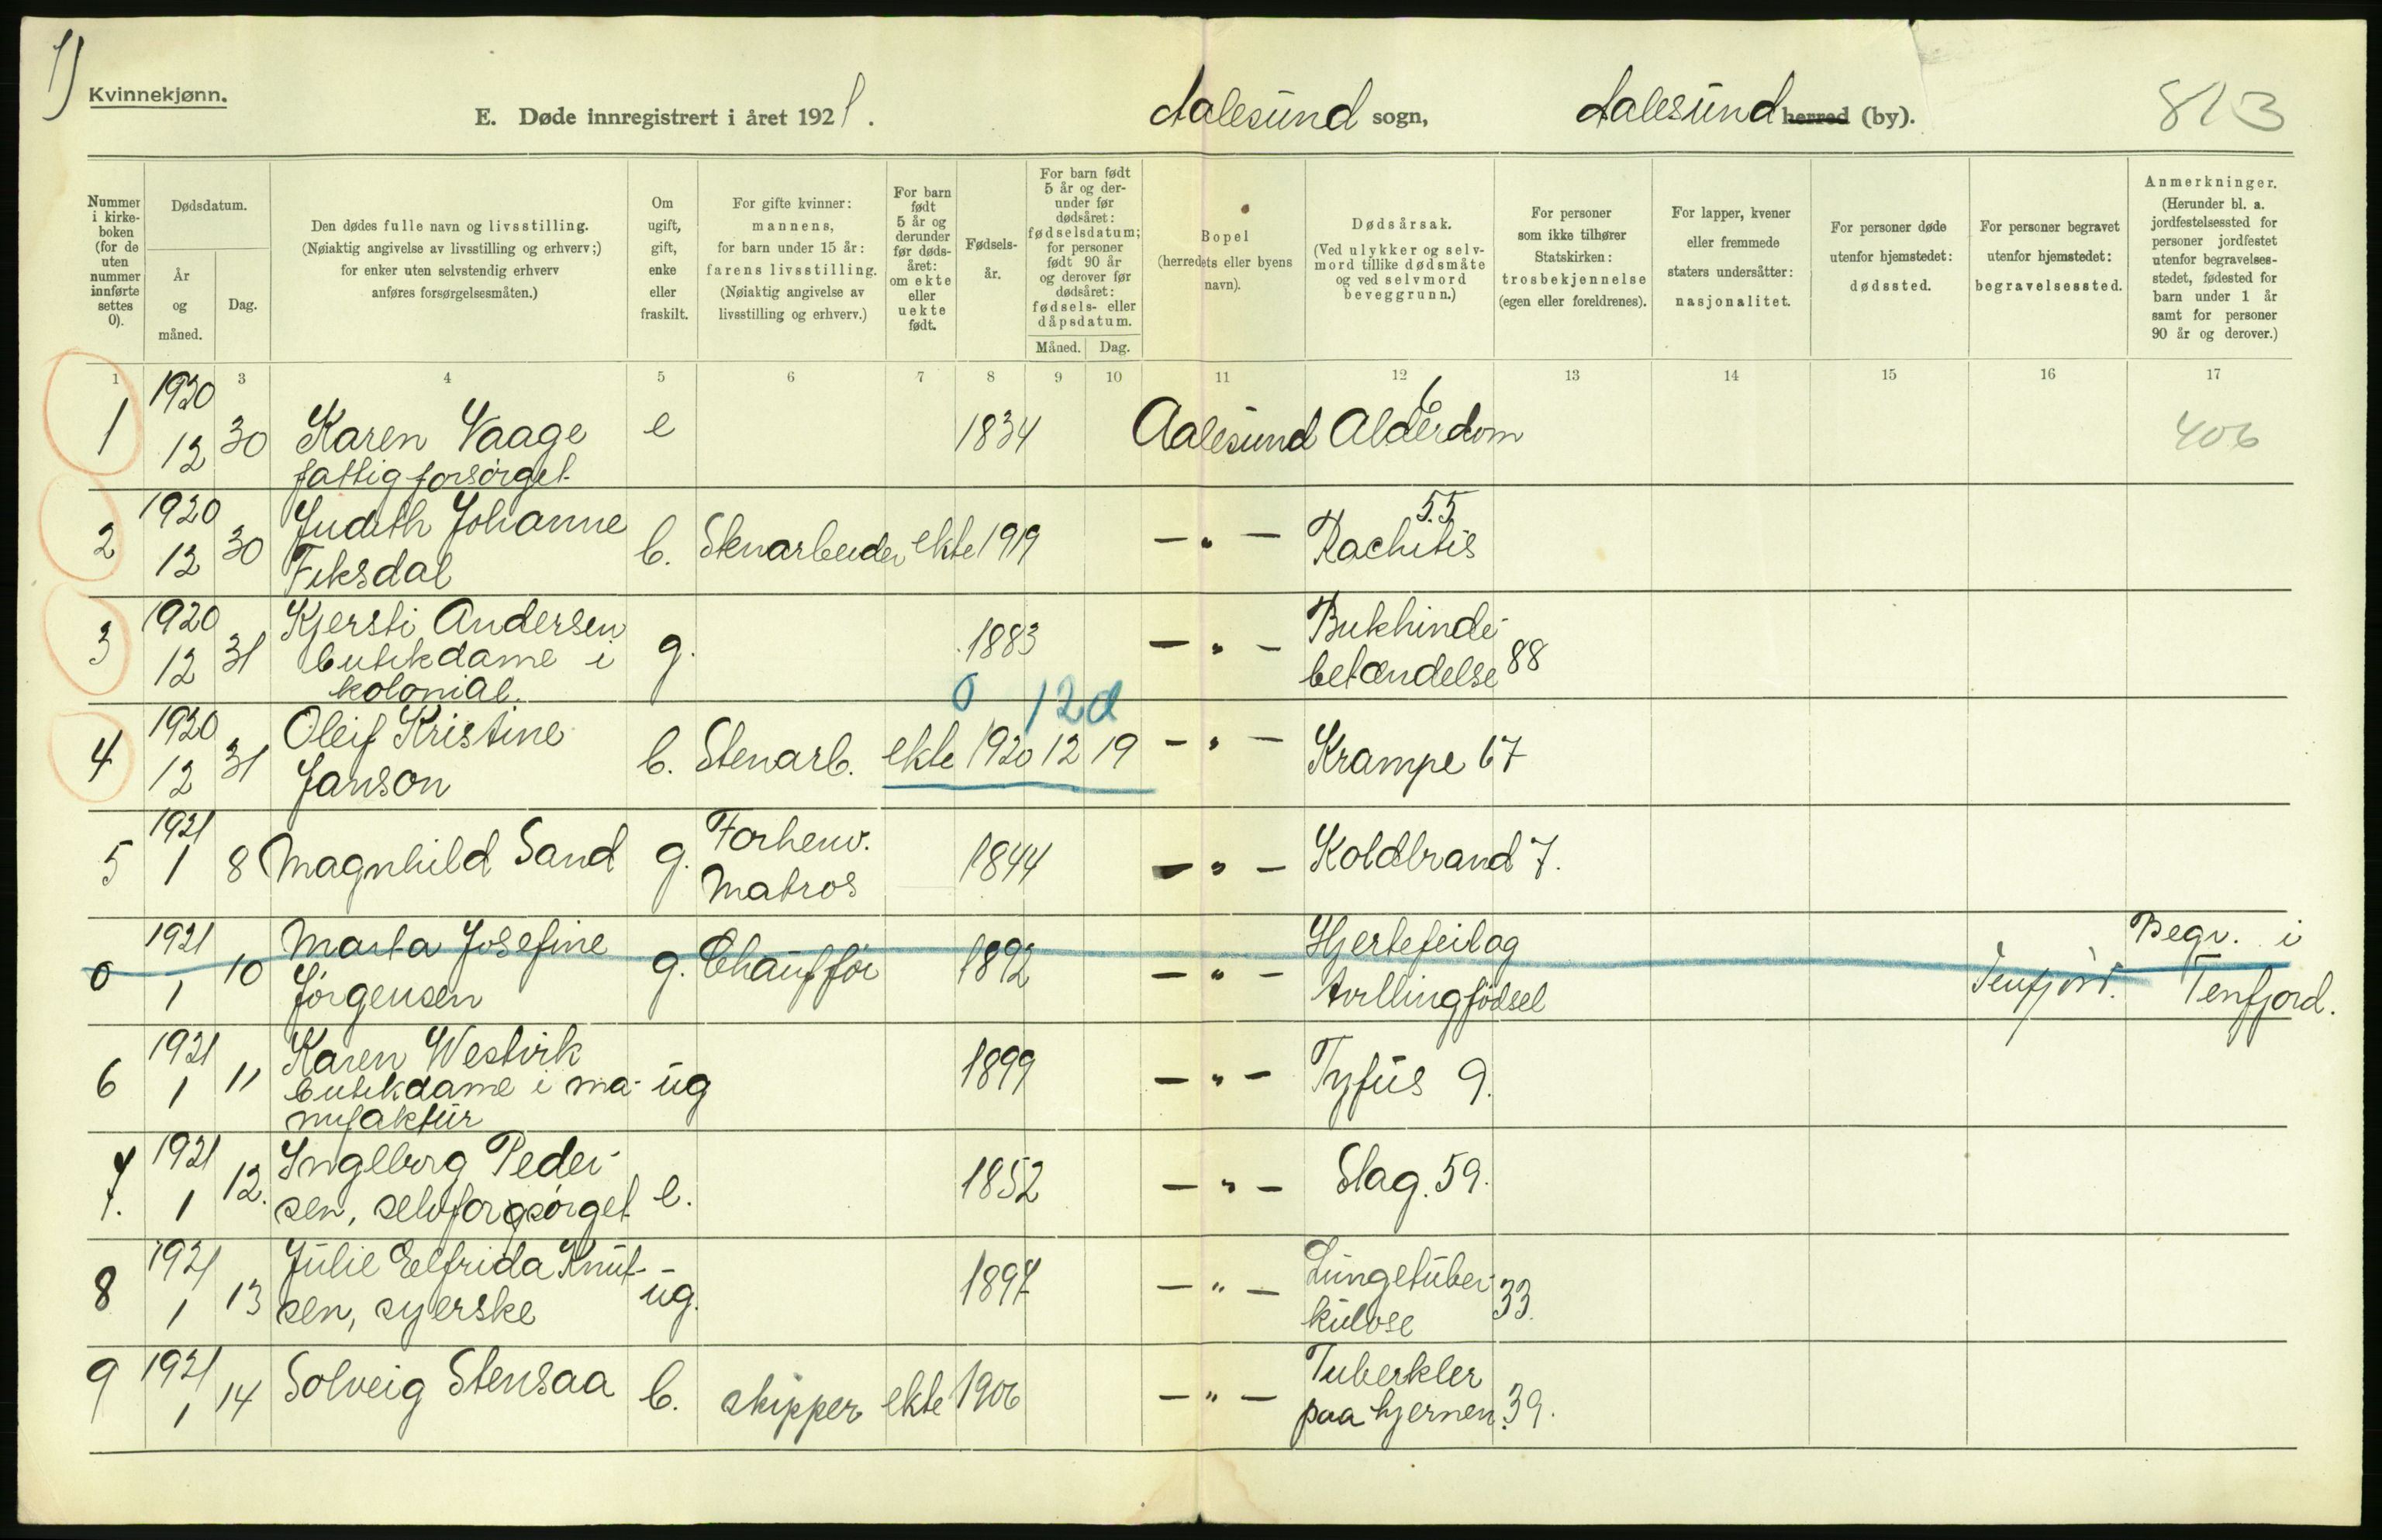 1)
Kvinnekjønn.
E. Døde innregistrert i året 1921. Aalesund sogn, Aalesund herred (by). 813
Nummer i kirkeboken (for de uten nummer innførte settes 0).
Dødsdatum.
År og måned.
Dag.
Den dødes fulle navn og livsstilling. (Nøiaktig angivelse av livsstilling og erhverv;) for enker uten selvstendig erhverv anføres forsørgelsesmåten.)
Om ugift, gift, enke eller fraskilt.
For gifte kvinner: mannens, for barn under 15 år: farens livsstilling. (Nøiaktig angivelse av livsstilling og erhverv.)
For barn født 5 år og derunder før dødsåret: om ekte eller uekte født.
Fødselsår.
For barn født 5 år og derunder før dødsåret: fødselsdatum; for personer født 90 år og derover før dødsåret: fødsels- eller dåpsdatum.
Måned. Dag.
Bopel (herredets eller byens navn).
Dødsårsak. (Ved ulykker og selvmord tillike dødsmåte og ved selvmord beveggrunn.)
For personer som ikke tilhører Statskirken: trosbekjennelse (egen eller foreldrenes).
For lapper, kvener eller fremmede staters undersåtter: nasjonalitet.
For personer døde utenfor hjemstedet: dødssted.
For personer begravet utenfor hjemstedet: begravelsessted.
Anmerkninger. (Herunder bl. a. jordfestelsessted for personer jordfestet utenfor begravelsesstedet, fødested for barn under 1 år samt for personer 90 år og derover.)
1 3 4 5 6 7 8 9 10 11 12 13 14 15 16 17
1 1920 12 30 Karen Vaage fattigforsørget e 1834 Aalesund Alderdom 6 406
2 1920 12 30 Judith Johanne Fiksdal b. Stenarbeider ekte 1919 — " — Rachitis 55
3 1920 12 31 Kjersti Andersen butikdame i kolonial. g. 1883 — " — Bukhindebetændelse 88
0 12 d
4 1920 12 31 Oleif Kristine Janson b. Stenarb. ekte 1920 12 19 — " — Krampe 67
5 1921 1 8 Magnhild Sand g. Forhenv. Matros 1844 — " — Koldbrand 7.
0 1921 1 10 Marta Josefine Jørgensen g. Chauffør 1892 — " — Hjertefeil og tvillingfødsel Tenfjord. Begr. i Tenfjord.
6 1921 1 11 Karen Westvik butikdame i manufaktur ug 1899 — " — Tyfus 9.
7. 1921 1 12. Ingeborg Pedersen, selvforsørget e. 1852 — " — Slag. 59.
8 1921 1 13 Julie Elfrida Knutsen, syerske ug. 1897 — " — Lungetuberkulose 33.
9 1921 1 14 Solveig Stensaa b. skipper ekte 1906 — " — Tuberkler paa hjernen. 39.